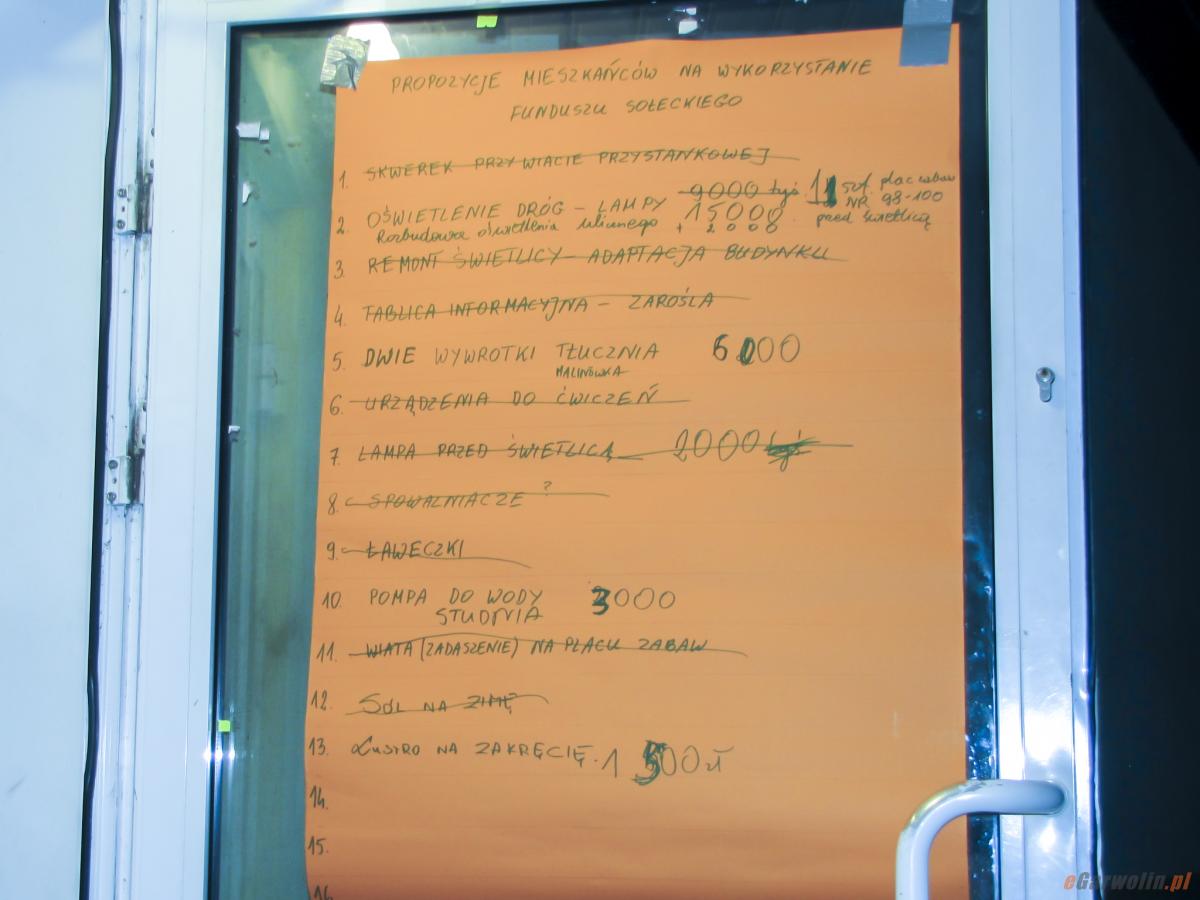 PROPOZYCJE MIESZKAŃCÓW NA WYKORZYSTANIE
FUNDUSZU SOŁECKIEGO
1. SKWEREK PRZY WIACIE PRZYSTANKOWEJ
9000 tyś
2. OŚWIETLENIE DRÓG - LAMPY 15000
Rozbudowa oświetlenia ulicznego + 2000
szt. plac zabaw
NR 98-100
przed świetlicą
3. REMONT ŚWIETLICY - ADAPTACJA BUDYNKU
4. TABLICA INFORMACYJNA - ZAROŚLA
5. DWIE WYWROTKI TŁUCZNIA 6000
MALINÓWKA
6. URZĄDZENIA DO ĆWICZEŃ
7. LAMPA PRZED ŚWIETLICĄ 2000
8. SPOWALNIACZE ?
9. ŁAWECZKI
10. POMPA DO WODY 3000
STUDNIA
11. WIATA (ZADASZENIE) NA PLACU ZABAW
12. SÓL NA ZIMĘ
13. LUSTRO NA ZAKRĘCIĘ. 1 500 zł
14.
15.
16.
eGarwolin.pl